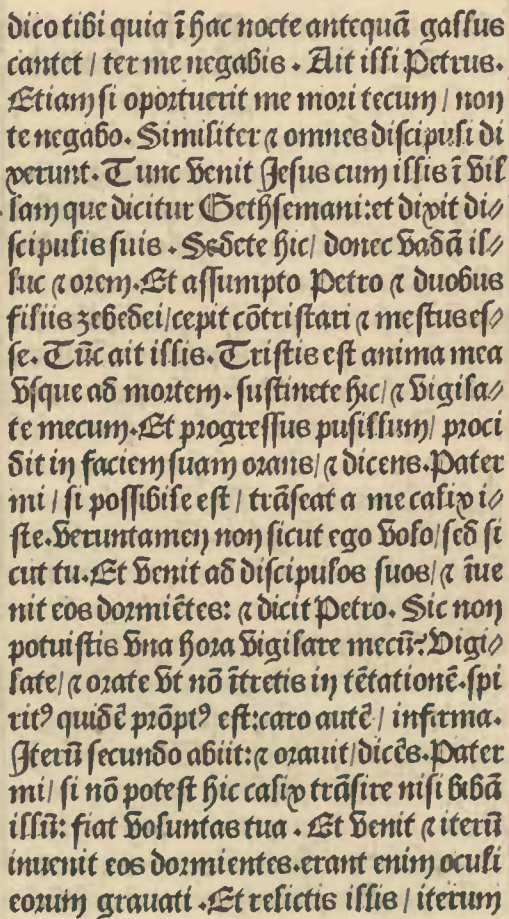 dico tibi quia ī hac nocte antequā gallus
cantet / ter me negabis . Ait illi Petrus.
Etiam si oportuerit me mori tecum / non
te negabo. Similiter ⁊ omnes discipuli di
xerunt. Tunc venit Jesus cum illis ī vil
lam que dicitur Gethsemani: et dixit di⸗
scipulis suis . Sedete hic / donec vadā il⸗
luc ⁊ orem. Et assumpto Petro ⁊ duobus
filiis zebedei / cepit cōtristari ⁊ mestus es⸗
se. Tūc ait illis. Tristis est anima mea
vsque ad mortem. sustinete hic / ⁊ vigila⸗
te mecum. Et progressus pusillum / proci
dit in faciem suam orans / ⁊ dicens. Pater
mi / si possibile est / trāseat a me calix i⸗
ste. veruntamen non sicut ego volo / sed si
cut tu. Et venit ad discipulos suos / ⁊ īue
nit eos dormiētes: ⁊ dicit Petro. Sic non
potuistis vna hora vigilare mecū: Vigi⸗
late / ⁊ orate vt nō ītretis in tētationē. spi
ritꝰ quidē prōptꝰ est: caro autē / infirma.
Iterū secundo abiit: ⁊ orauit / dicēs. Pater
mi / si nō potest hic calix trāsire nisi bibā
illū: fiat voluntas tua . Et venit ⁊ iterū
inuenit eos dormientes. erant enim oculi
eorum grauati . Et relictis illis / iterum